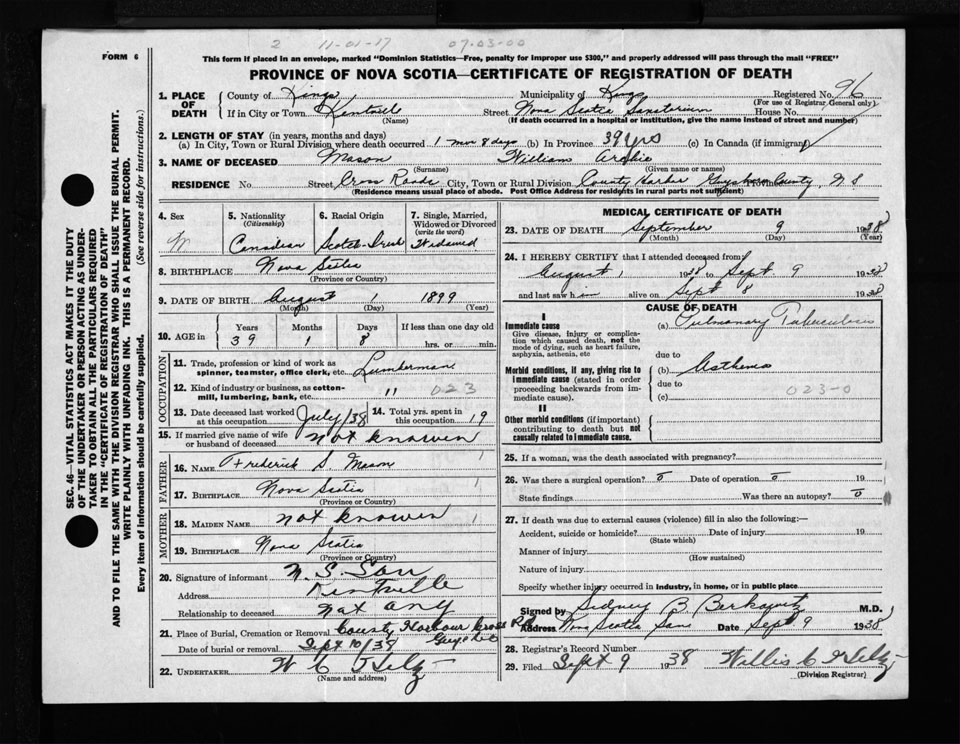 2 11-01-17 07-03-00
FORM 6
This form if placed in an envelope, marked "Dominion Statistics—Free, penalty for improper use $300," and properly addressed will pass through the mail "FREE"
PROVINCE OF NOVA SCOTIA—CERTIFICATE OF REGISTRATION OF DEATH
1. PLACE OF DEATH
County of Kings Municipality of Kings Registered No. 96
(For use of Registrar General only)
If in City or Town Kentville Street Nova Scotia Sanatorium House No.
(Name) (If death occurred in a hospital or institution, give the name instead of street and number)
2. LENGTH OF STAY (in years, months and days)
(a) In City, Town or Rural Division where death occurred 1 mon 8 days (b) In Province 39 yrs (c) In Canada (if immigrant)
3. NAME OF DECEASED Mason William Archie
(Surname) (Given name or names)
RESIDENCE No. Street Cross Roads City, Town or Rural Division County Harbor Guysboro County, N S Province
(Residence means usual place of abode. Post Office Address for residents in rural parts not sufficient)
4. Sex M
5. Nationality (Citizenship) Canadian
6. Racial Origin Scotch-Irish
7. Single, Married, Widowed or Divorced (write the word) Widowed
8. BIRTHPLACE Nova Scotia
(Province or Country)
9. DATE OF BIRTH August 1 1899
(Month) (Day) (Year)
10. AGE in Years Months Days If less than one day old
39 1 8 hrs. or min.
OCCUPATION
11. Trade, profession or kind of work as spinner, teamster, office clerk, etc. Lumberman
12. Kind of industry or business, as cotton-mill, lumbering, bank, etc. " 023
13. Date deceased last worked at this occupation July/38
14. Total yrs. spent in this occupation 19
15. If married give name of wife or husband of deceased not known
FATHER
16. NAME Frederick S. Mason
17. BIRTHPLACE Nova Scotia
(Province or Country)
MOTHER
18. MAIDEN NAME not known
19. BIRTHPLACE Nova Scotia
(Province or Country)
20. Signature of informant N. S. San
Address Kentville
Relationship to deceased not any
21. Place of Burial, Cremation or Removal County Harbour Cross Rd
Guys Co
Date of burial or removal Sept 10/38
22. UNDERTAKER W C
(Name and address)
MEDICAL CERTIFICATE OF DEATH
23. DATE OF DEATH September 9 1938
(Month) (Day) (Year)
24. I HEREBY CERTIFY that I attended deceased from
August 1 1938 to Sept 9 1938
and last saw him alive on Sept 8 1938
CAUSE OF DEATH
I
Immediate cause
Give disease, injury or complication which caused death, not the mode of dying, such as heart failure, asphyxia, asthenia, etc
(a) Pulmonary Tuberculosis
due to
Morbid conditions, if any, giving rise to immediate cause (stated in order proceeding backwards from immediate cause).
(b) Asthma
due to
(c) 023-0
II
Other morbid conditions (if important) contributing to death but not causally related to immediate cause.
25. If a woman, was the death associated with pregnancy?
26. Was there a surgical operation? 0 Date of operation 0 19
State findings Was there an autopsy? 0
27. If death was due to external causes (violence) fill in also the following:—
Accident, suicide or homicide? Date of injury 19
(State which)
Manner of injury
(How sustained)
Nature of injury
Specify whether injury occurred in industry, in home, or in public place
Signed by Sidney B. Berkowitz M.D.
Address Nova Scotia San Date Sept 9 1938
28. Registrar's Record Number
29. Filed Sept 9 1938 Willis C
(Division Registrar)
SEC. 46—VITAL STATISTICS ACT MAKES IT THE DUTY
OF THE UNDERTAKER OR PERSON ACTING AS UNDER-
TAKER TO OBTAIN ALL THE PARTICULARS REQUIRED
IN THE "CERTIFICATE OF REGISTRATION OF DEATH"
AND TO FILE THE SAME WITH THE DIVISION REGISTRAR WHO SHALL ISSUE THE BURIAL PERMIT.
WRITE PLAINLY WITH UNFADING INK. THIS IS A PERMANENT RECORD.
Every item of information should be carefully supplied. (See reverse side for instructions.)